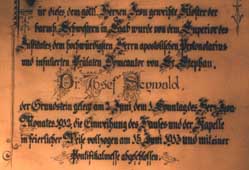 für dieses dem göttl. Herzen Jesu geweihte Kloster der
barmh. Schwestern in Saab wurde von dem Superior des
Institutes dem hochwürdigsten Herrn apostolischen Protonotarius
und infulierten Prälaten Domcantor von St. Stephan,
Dr. Josef Seywald,
der Grundstein gelegt am 2. Juni, dem 1. Sonntag des Herz Jesu
Monates 1912, die Einweihung des Hauses und der Kapelle
in feierlicher Weise vollzogen am 15. Juni 1913 und mit einer
Pontifikalmesse abgeschlossen.